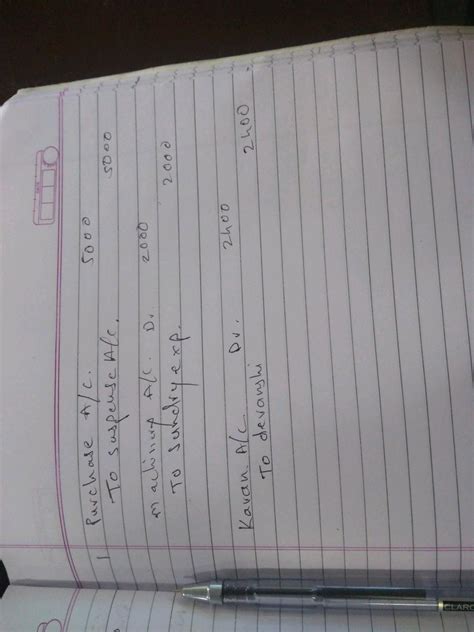 1 Purchase A/c. 5000
To suspense A/c. 5000
Machinery A/c. Dr. 2000
To Sundry exp. 2000
Karan A/c Dr. 2400
To devanshi 2400
CLARO